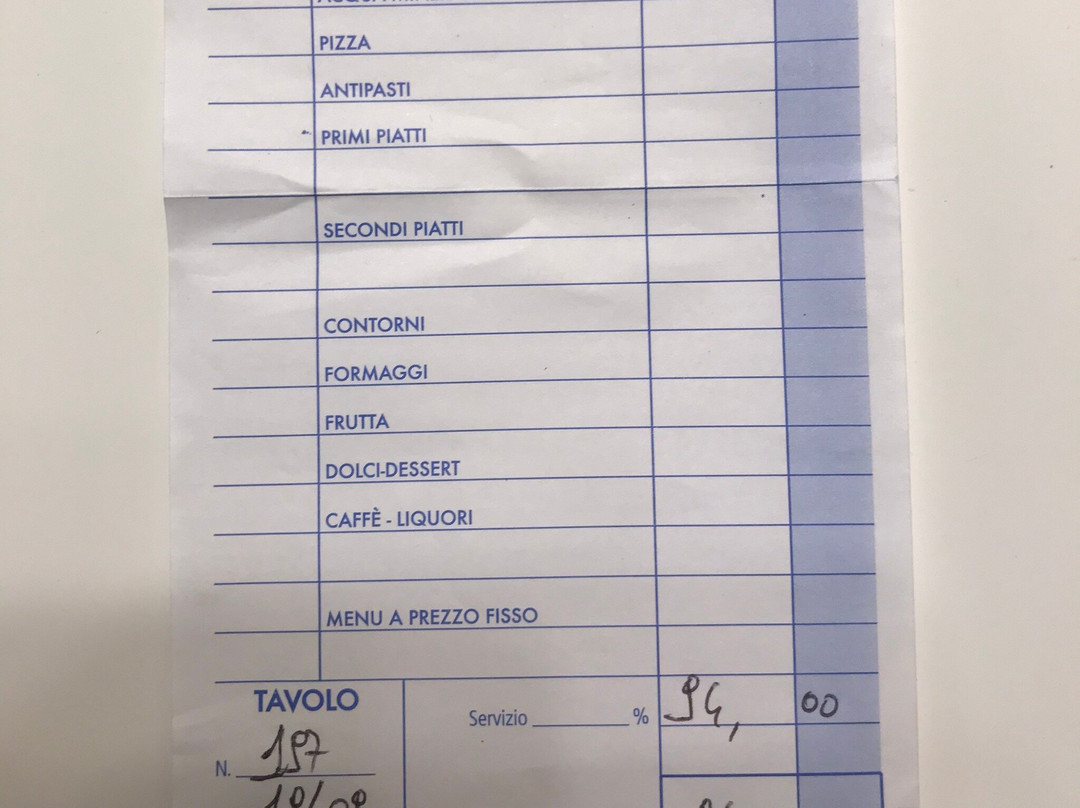 PIZZA
ANTIPASTI
PRIMI PIATTI
SECONDI PIATTI
CONTORNI
FORMAGGI
FRUTTA
DOLCI-DESSERT
CAFFÈ - LIQUORI
MENU A PREZZO FISSO
TAVOLO
Servizio % 94, 00
N. 197